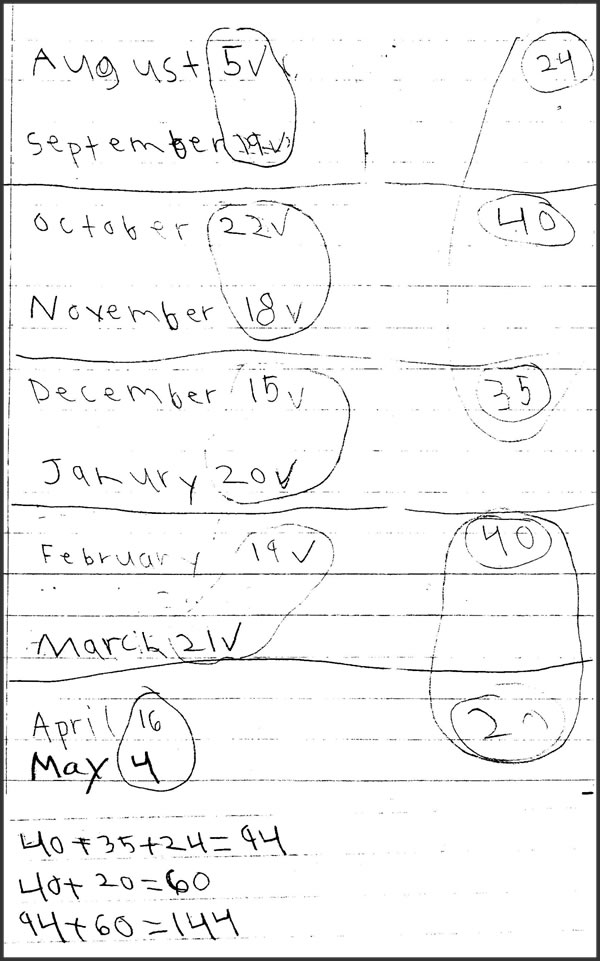 August 5✓ 24
September 19✓
October 22✓ 40
November 18✓
December 15✓ 35
Janury 20✓
February 19✓ 40
March 21✓
April 16 20
May 4
40+35+24=94
40+20=60
94+60=144